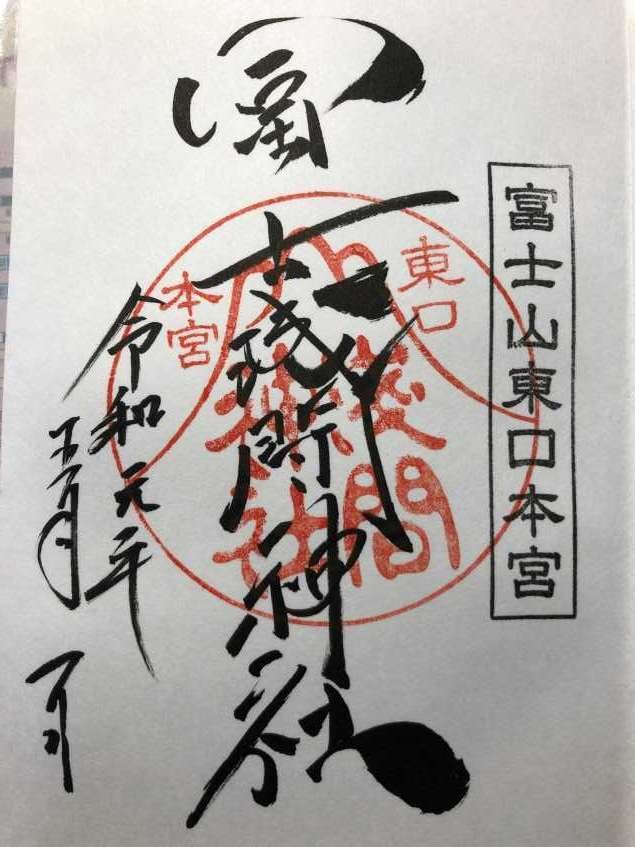 富士山東口本宮
冨士浅間神社
東口
本宮
浅間
神社
令和元年
五月一日